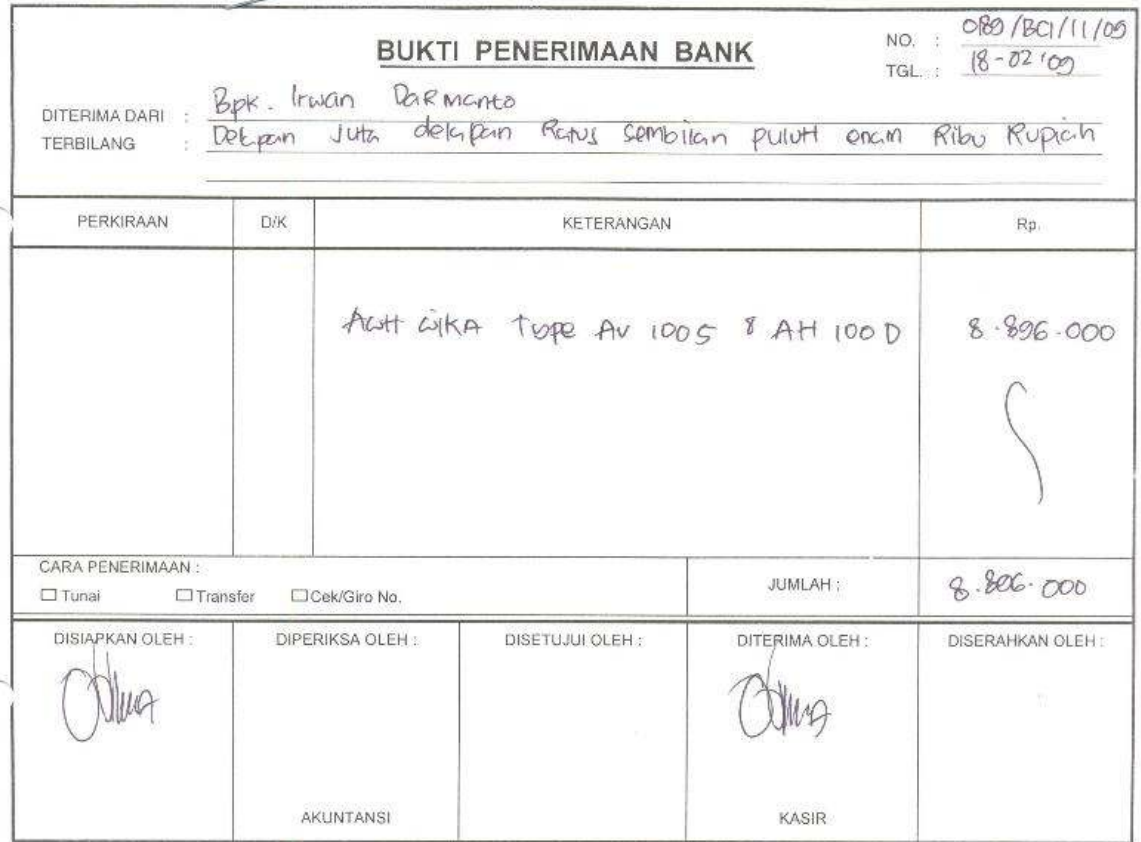 BUKTI PENERIMAAN BANK
NO. : 0189/BCI/11/09
TGL. : 18-02'09
DITERIMA DARI : Bpk. Irwan Darmanto
TERBILANG : Delapan Juta delapan Ratus Sembilan puluH enam Ribu Rupiah
PERKIRAAN D/K KETERANGAN Rp.
AWH WIKA Type AV 100S & AH 100 D 8.896.000
CARA PENERIMAAN :
☐ Tunai ☐ Transfer ☐ Cek/Giro No. JUMLAH : 8.896.000
DISIAPKAN OLEH : DIPERIKSA OLEH : DISETUJUI OLEH : DITERIMA OLEH : DISERAHKAN OLEH :
AKUNTANSI KASIR